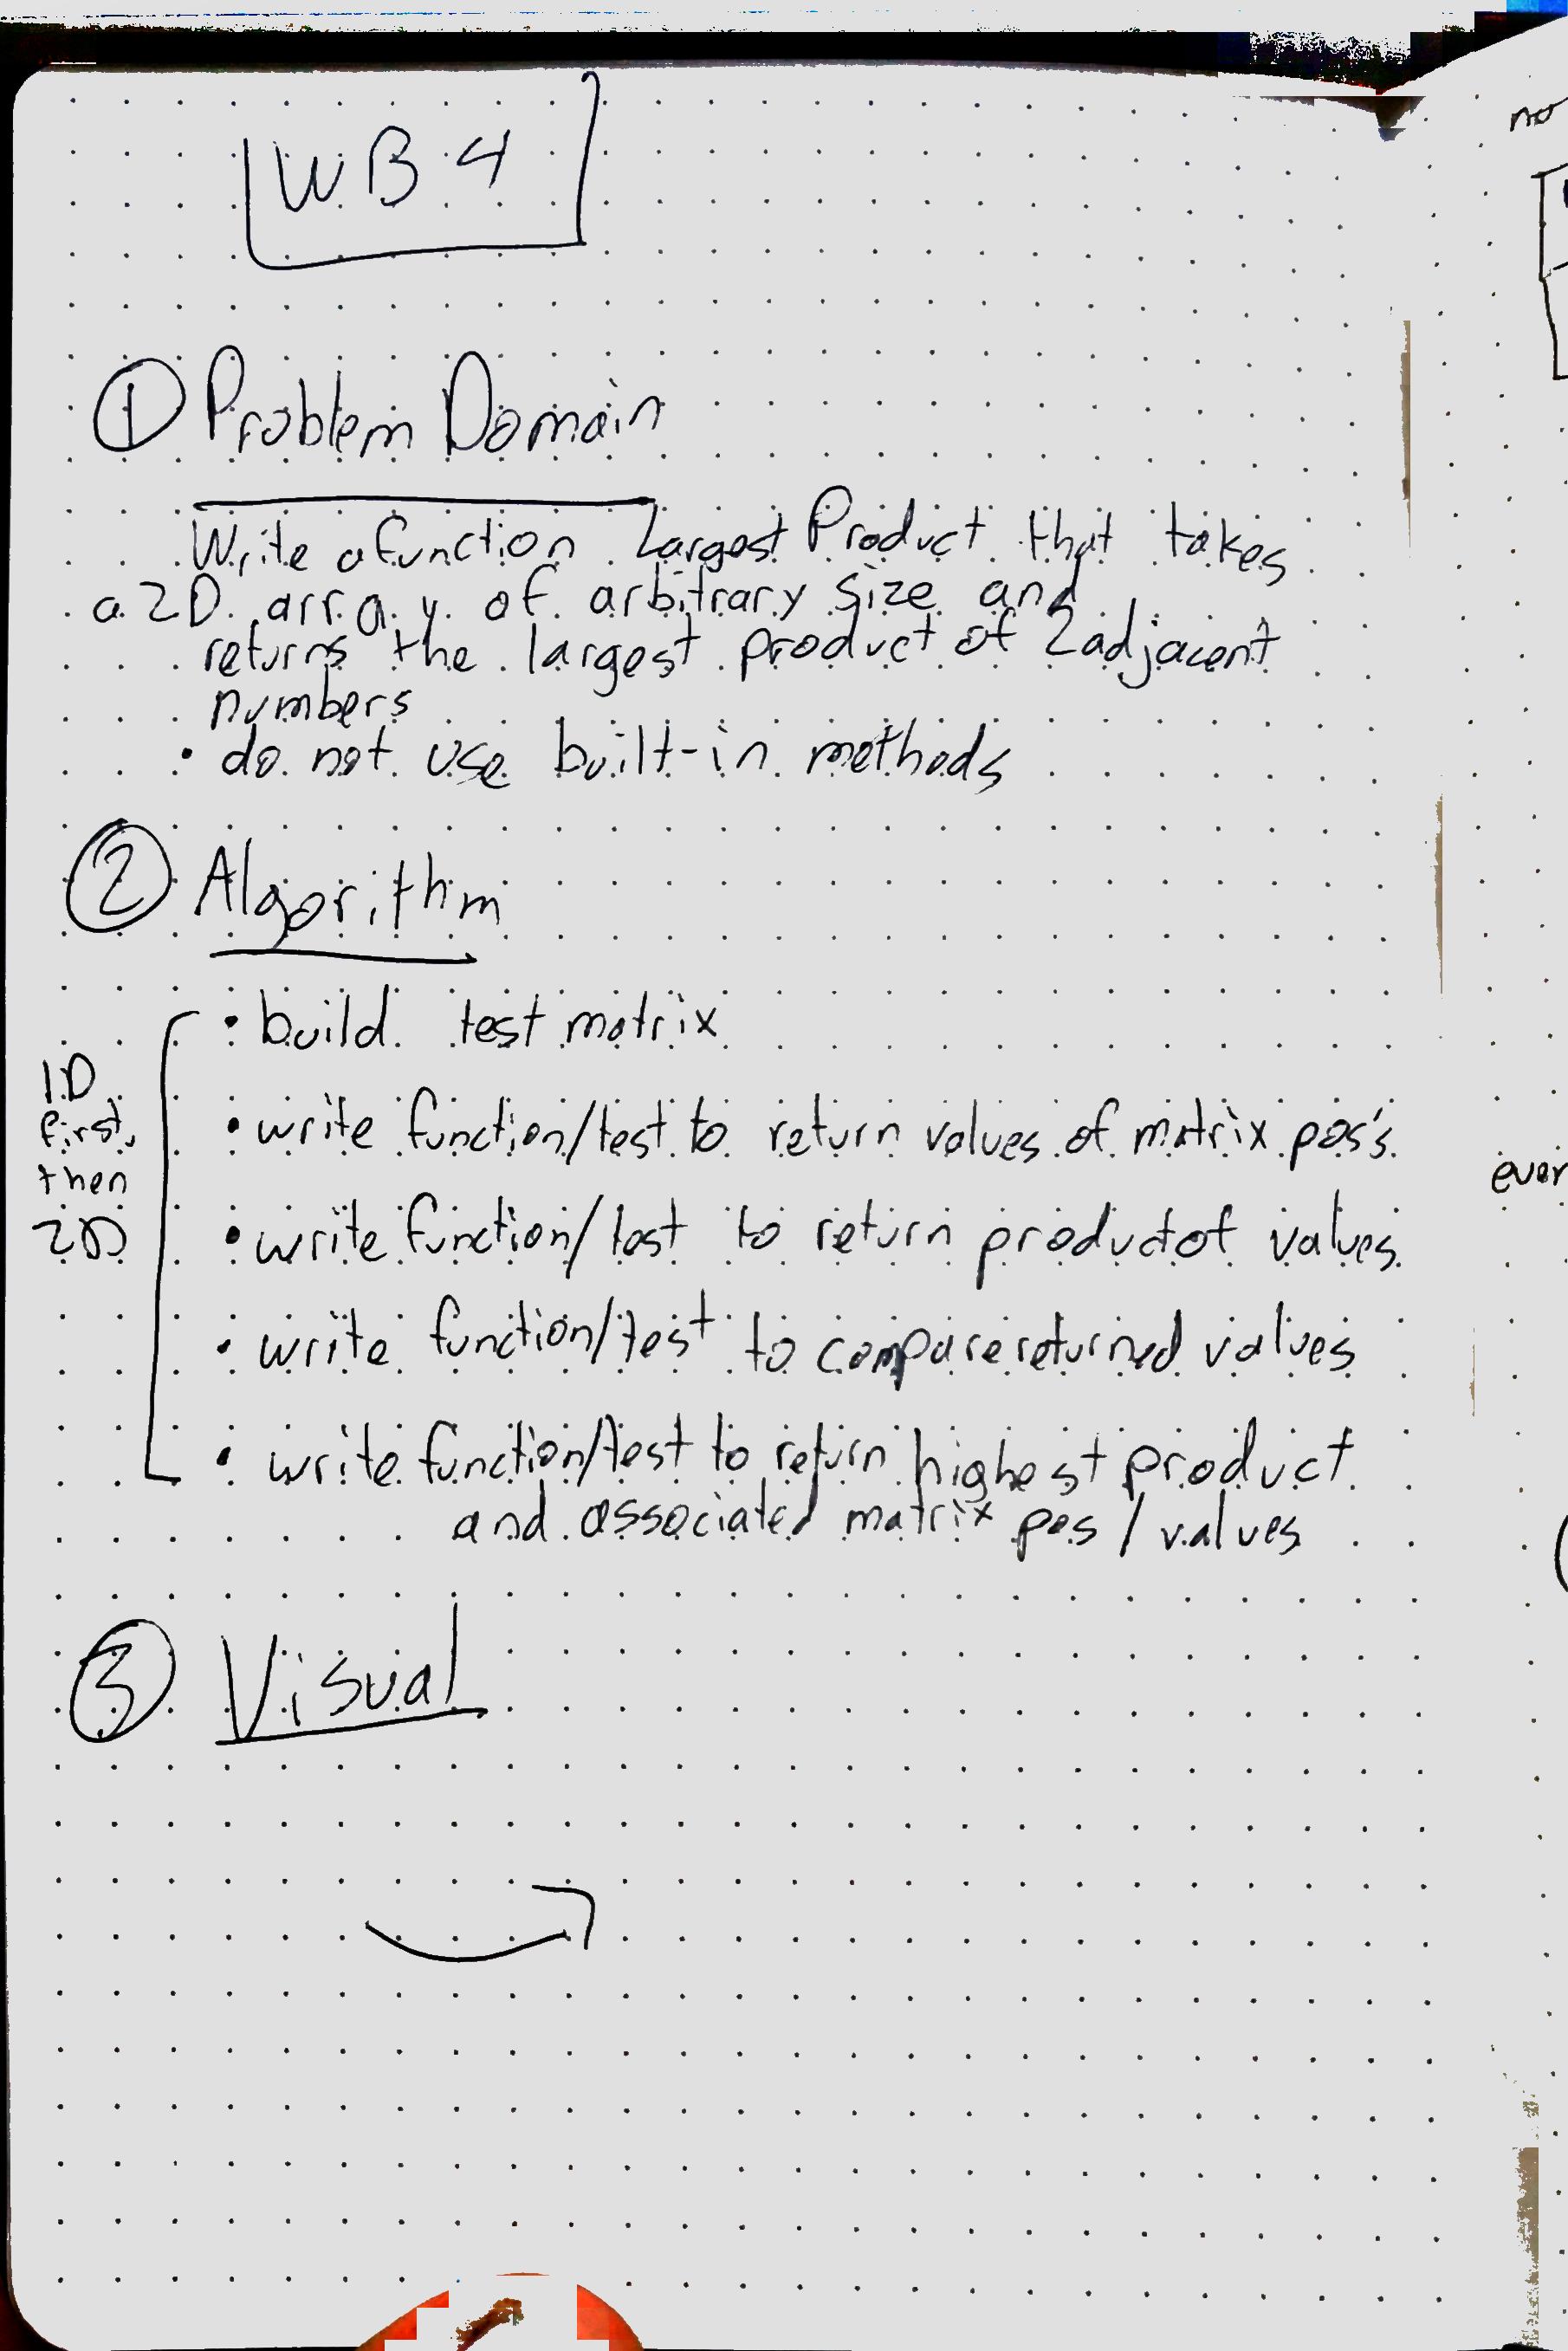 WB 4
① Problem Domain
Write a function Largest Product that takes
a 2D array of arbitrary size and
returns the largest product of 2 adjacent
numbers
• do not use built-in methods
② Algorithm
1D
first,
then
2D
• build test matrix
• write function/test to return values of matrix pos's
• write function/test to return product of values
• write function/test to compare returned values
• write function/test to return highest product
and associated matrix pos / values
③ Visual
no